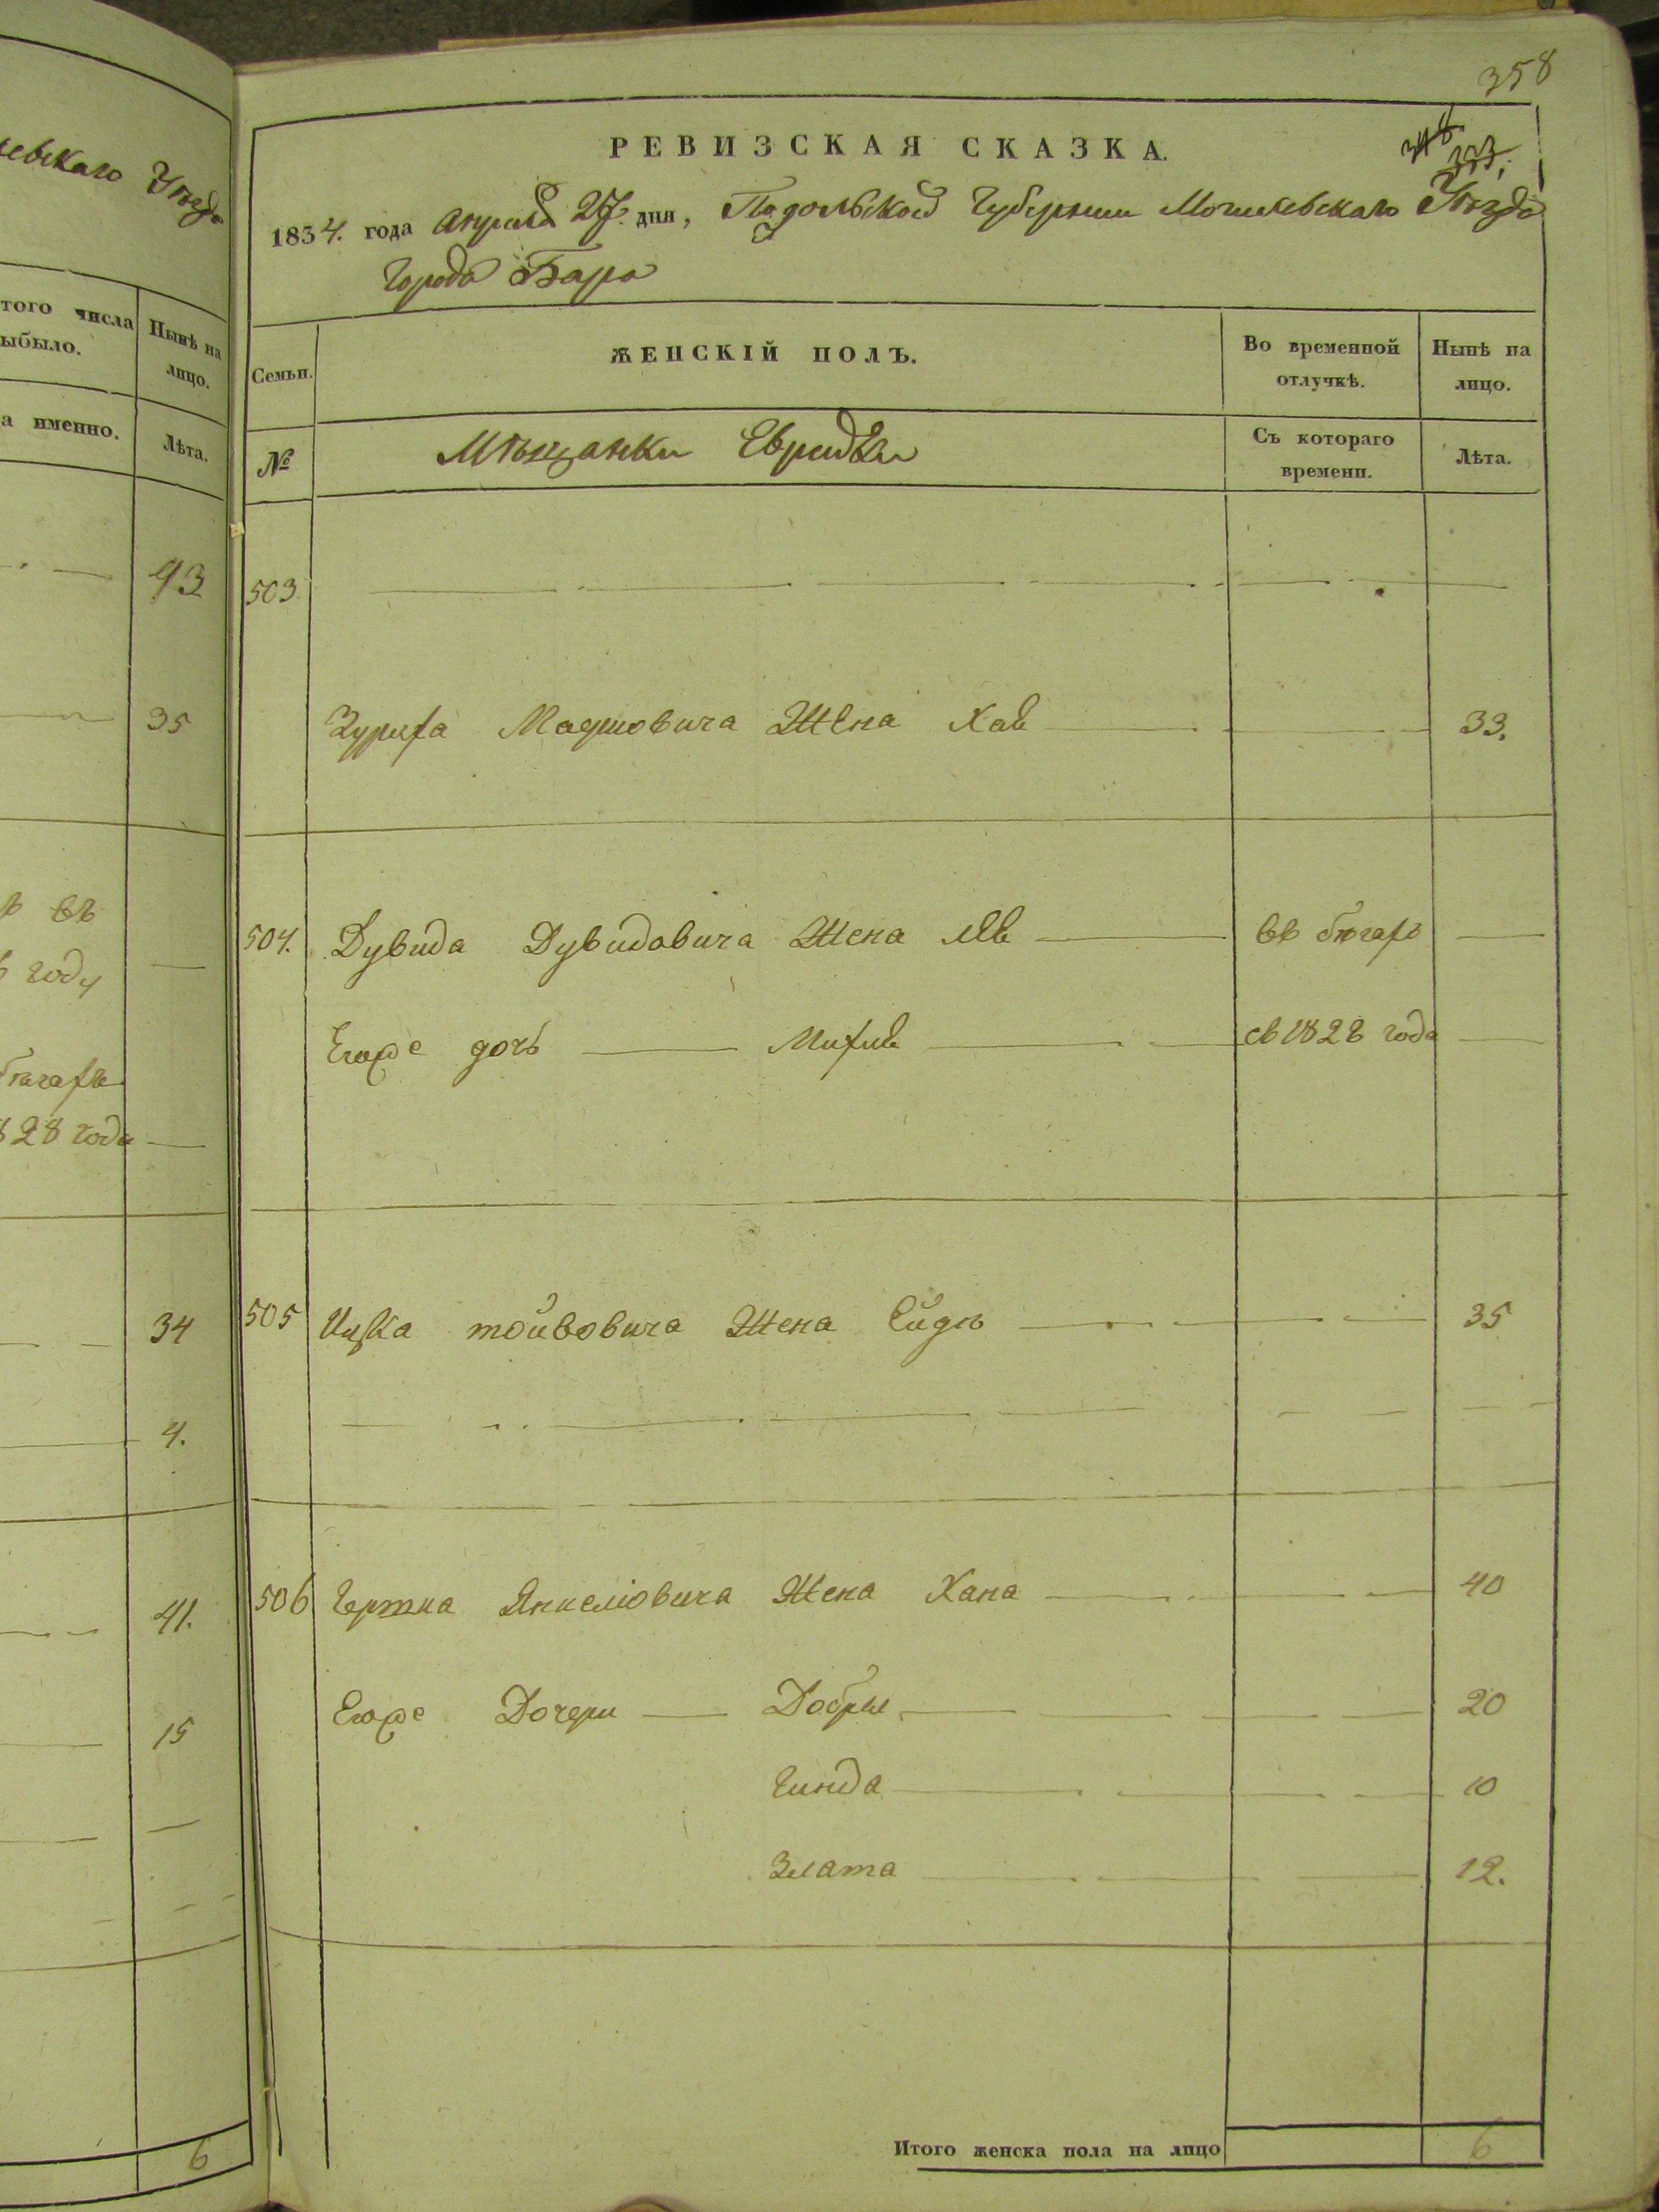 евскаго Уѣзда
того числа
выбыло.
Нынѣ на
лицо.
а именно.
Лѣта.
93
35
ѣ въ
году
бѣгахъ
828 года
34
4.
41.
15
6
358
348
333.
РЕВИЗСКАЯ СКАЗКА.
1834. года Апреля 27. дня, Подольской Губернии Могилевскаго Уѣзда
Города Бара
Семьи. ЖЕНСКІЙ ПОЛЪ. Во временной отлучкѣ. Нынѣ на лицо.
№ Мѣщанки Еврейки Съ котораго времени. Лѣта.
503
Жена Хая 33.
504. Дувида Дувидовича Жена въ бѣгахъ
Егоже дочь съ 1828 года
505 Ицка Жена Ейдля 35
506 Гершка Янкеліовича Жена Хана 40
Егоже Дочери Добрыя 20
Гинда 10
Злата 12.
Итого женска пола на лицо 6